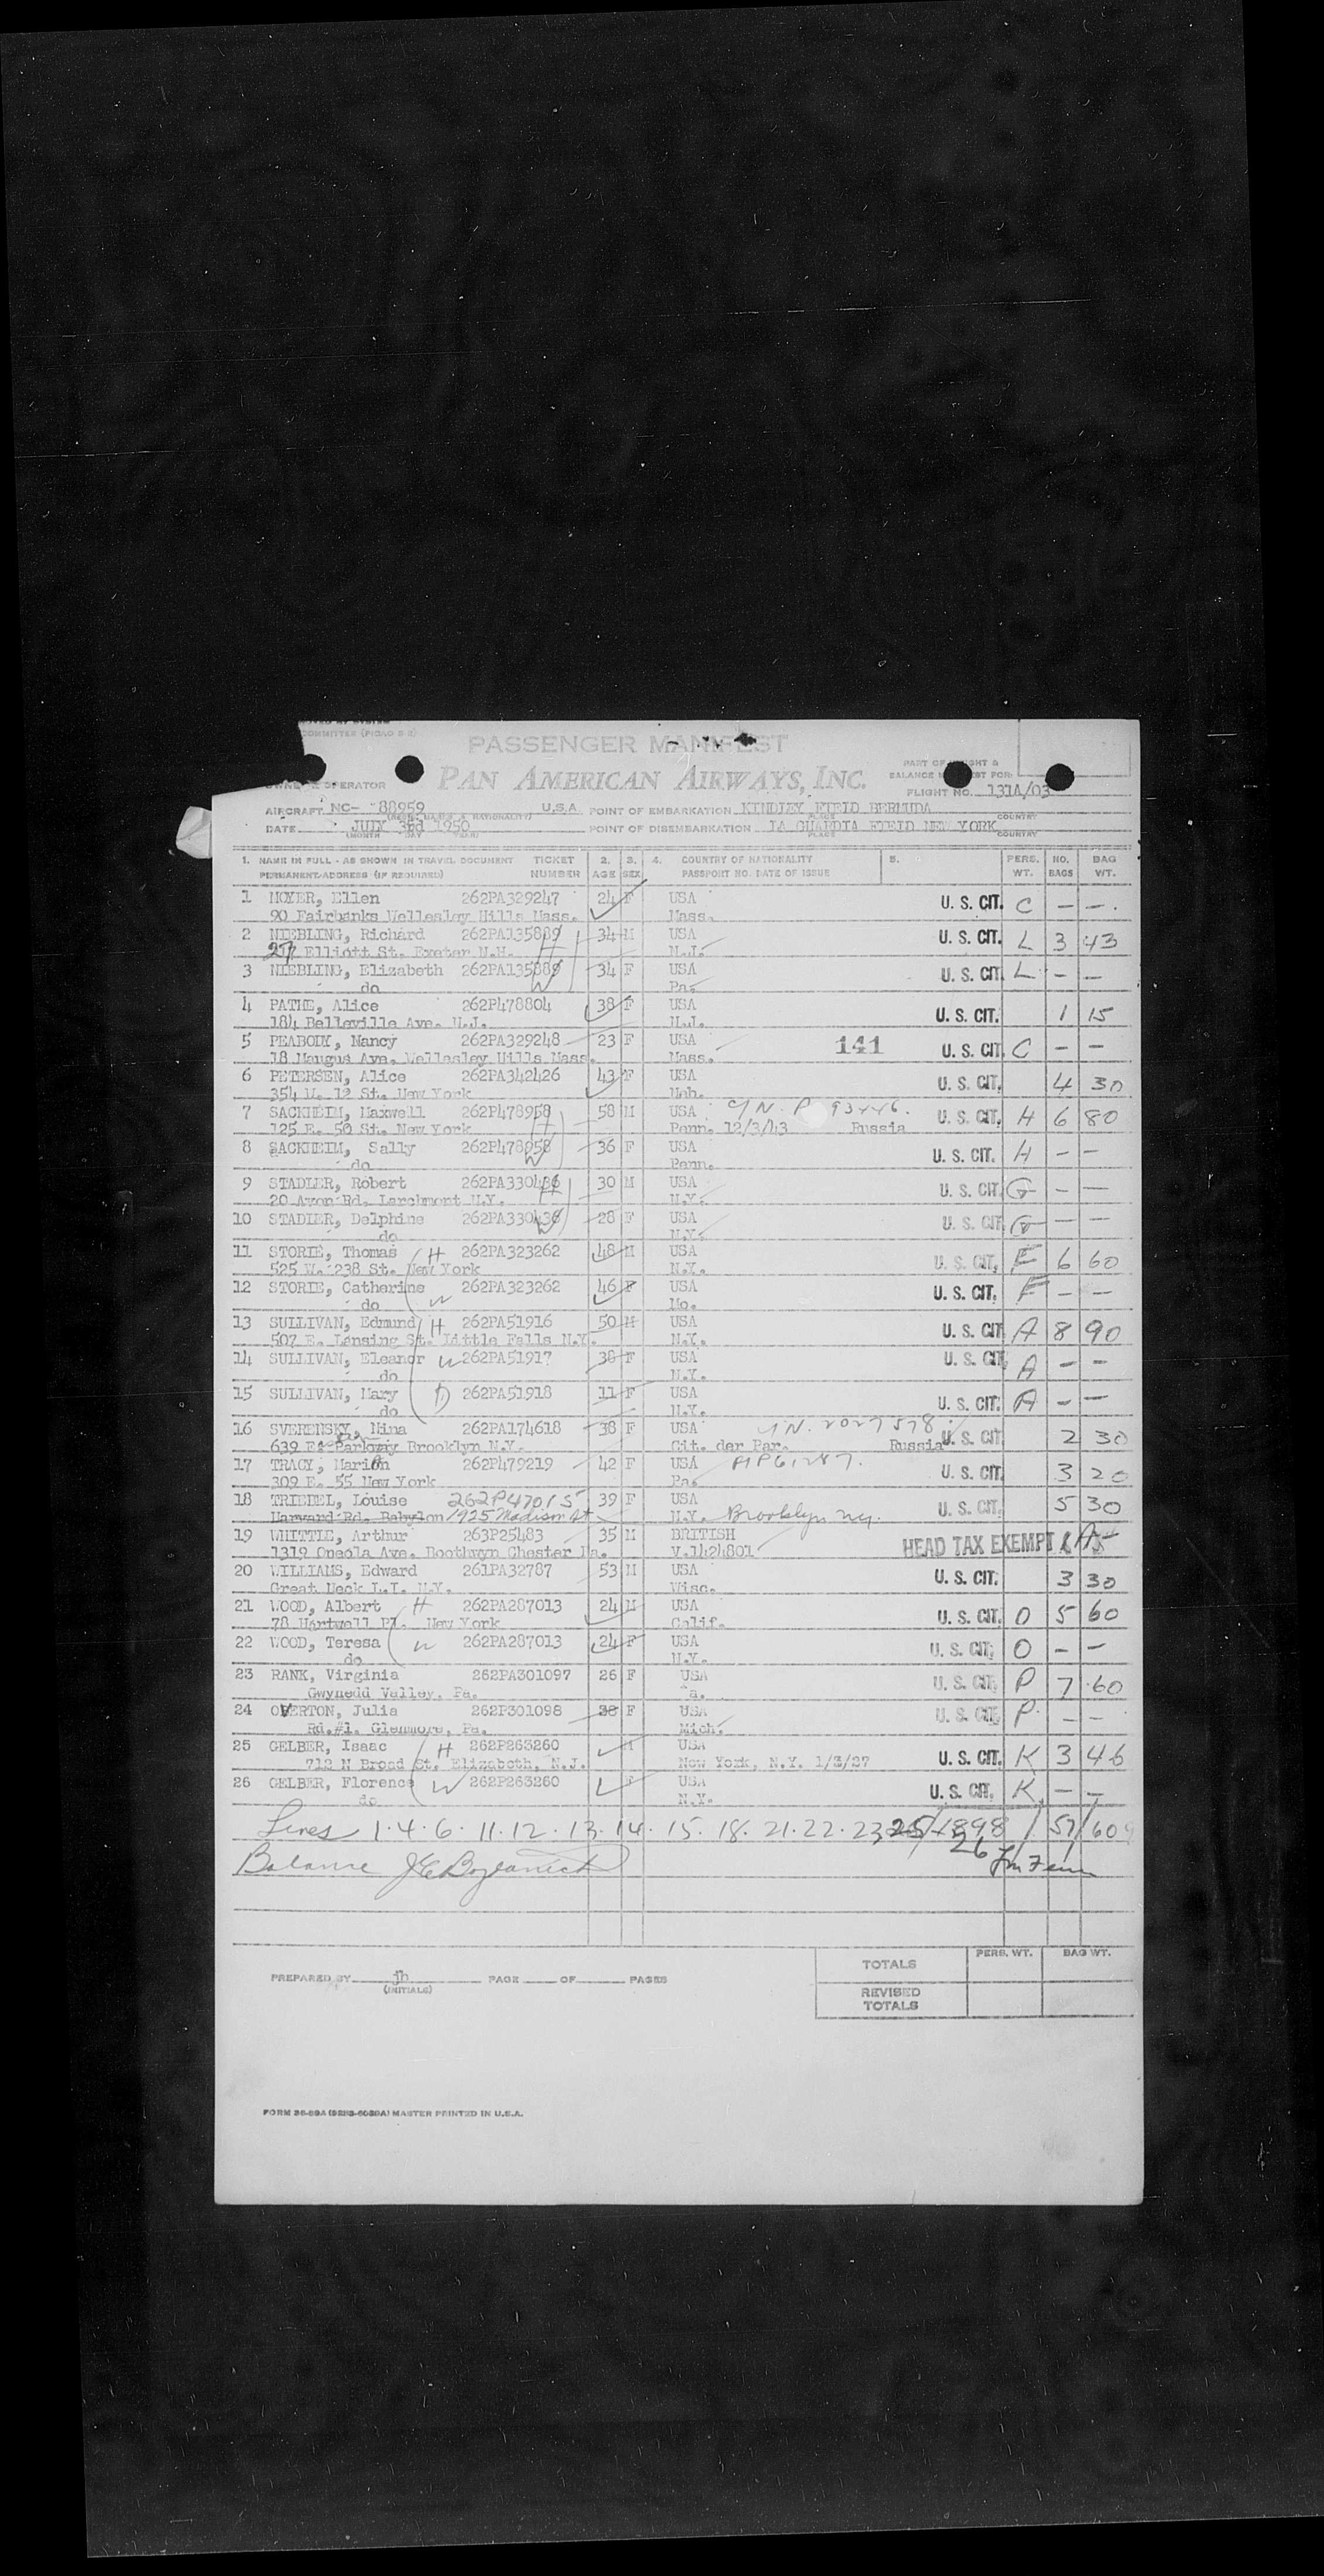 COMMITTEE (PICAO S-2)
PASSENGER MANIFEST
PAN AMERICAN AIRWAYS, INC.
OPERATOR
FLIGHT NO. 131A/03
AIRCRAFT NC- 88959 U.S.A. POINT OF EMBARKATION KINDLEY FIELD BERMUDA
DATE JULY 3rd 1950 POINT OF DISEMBARKATION LA GUARDIA FIELD NEW YORK COUNTRY
(MONTH DAY YEAR) PLACE
1. NAME IN FULL - AS SHOWN IN TRAVEL DOCUMENT TICKET 2. 3. 4. COUNTRY OF NATIONALITY 5. PERS. NO. BAG
PERMANENT ADDRESS (IF REQUIRED) NUMBER AGE SEX PASSPORT NO. DATE OF ISSUE WT. BAGS WT.
1 MOYER, Ellen 262PA329247 24 F USA U. S. CIT. C - -
90 Fairbanks Wellesley Hills Mass. Mass.
2 NIEBLING, Richard 262PA135889 34 M USA U. S. CIT. L 3 43
Elliott St. Exeter N.H. N.J.
3 NIEBLING, Elizabeth 262PA135889 34 F USA U. S. CIT. L - -
do Pa.
4 PATHE, Alice 262P478804 38 F USA U. S. CIT. 1 15
184 Belleville Ave. N.J. N.J.
5 PEABODY, Nancy 262PA329248 23 F USA 141 U. S. CIT. C - -
18 Maugus Ave. Wellesley Hills Mass. Mass.
6 PETERSEN, Alice 262PA342426 43 F USA U. S. CIT. 4 30
354 W. 12 St. New York Neb.
7 SACKHEIM, Maxwell 262P478958 58 M USA U. S. CIT. H 6 80
125 E. 50 St. New York Penn. 12/3/43 Russia
8 SACKHEIM, Sally 262P478958 36 F USA U. S. CIT. H - -
do Penn.
9 STADLER, Robert 262PA330436 30 M USA U. S. CIT. G - -
20 Avon Rd. Larchmont N.Y. N.Y.
10 STADLER, Delphine 262PA330436 28 F USA U. S. CIT. G - -
do N.Y.
11 STORIE, Thomas H 262PA323262 48 M USA U. S. CIT. F 6 60
525 W. 238 St. New York N.Y.
12 STORIE, Catherine W 262PA323262 46 F USA U. S. CIT. F - -
do Mo.
13 SULLIVAN, Edmund H 262PA51916 50 M USA U. S. CIT. A 8 90
507 E. Lansing St. Little Falls N.Y. N.Y.
14 SULLIVAN, Eleanor W 262PA51917 38 F USA U. S. CIT. A - -
do N.Y.
15 SULLIVAN, Mary D 262PA51918 11 F USA U. S. CIT. A - -
do N.Y.
16 SVERENSKY, Nina 262PA174618 38 F USA U. S. CIT. 2 30
639 Parkway Brooklyn N.Y. Cit. der Par. Russia
17 TRACY, Marion 262P479219 42 F USA U. S. CIT. 3 20
309 E. 55 New York Pa.
18 TRIEBEL, Louise 262P47015 39 F USA U. S. CIT. 5 30
Harvard Rd. Babylon 1925 Madison St N.Y. Brooklyn N.Y.
19 WHITTLE, Arthur 263P25483 35 M BRITISH HEAD TAX EXEMPT
1319 Oneola Ave. Boothwyn Chester Pa. V.1424801
20 WILLIAMS, Edward 261PA32787 53 M USA U. S. CIT. 3 30
Great Neck L.I. N.Y. Wisc.
21 WOOD, Albert H 262PA287013 24 M USA U. S. CIT. O 5 60
78 Hartwell Pl. New York Calif.
22 WOOD, Teresa W 262PA287013 24 F USA U. S. CIT. O - -
do N.Y.
23 RANK, Virginia 262PA301097 26 F USA U. S. CIT. P 7 60
Gwynedd Valley, Pa. Pa.
24 OVERTON, Julia 262P301098 38 F USA U. S. CIT. P - -
Rd.#1. Glenmore, Pa. Mich.
25 GELBER, Isaac H 262P263260 M USA U. S. CIT. K 3 46
712 N Broad St. Elizabeth, N.J. New York, N.Y. 1/3/37
26 GELBER, Florence W 262P263260 USA U. S. CIT. K - -
do N.Y.
Lines 1.4.6. 11.12. 13.14. 15. 18. 21.22. 23 25 26
Balance
TOTALS PERS. WT. BAG WT.
PREPARED BY jh PAGE OF PAGES
(INITIALS)
REVISED
TOTALS
MASTER PRINTED IN U.S.A.